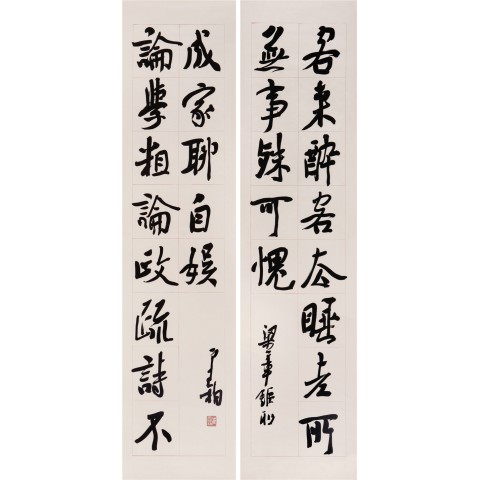 客來醉客去睡老所
無事殊可愧
梁章鉅聯
論學粗論政疏詩不
成家聊自娛